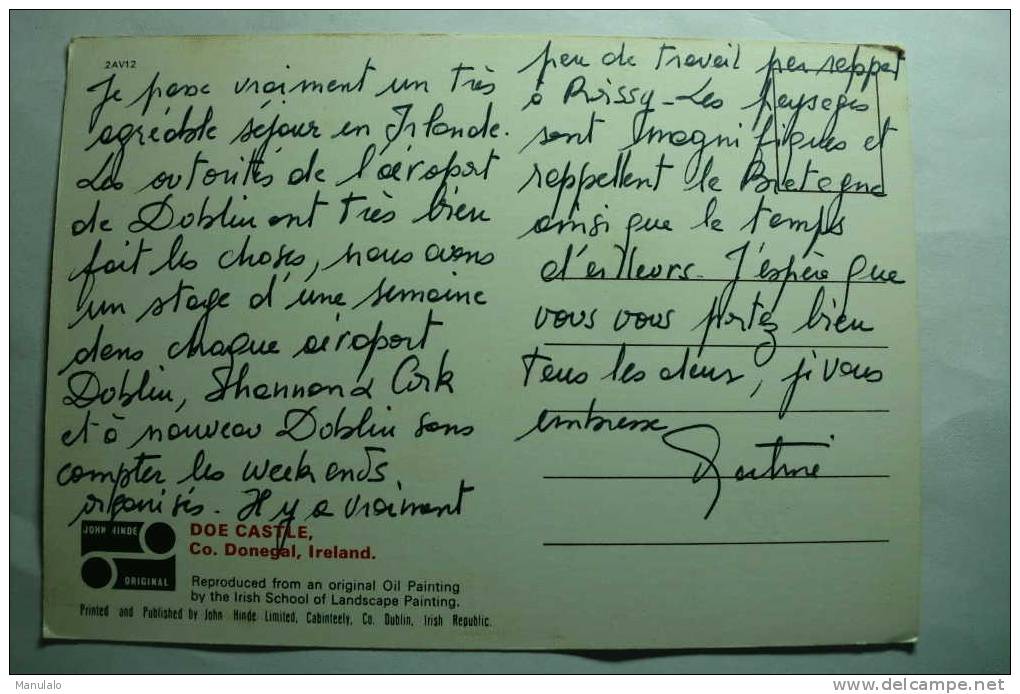 2AV12
Je passe vraiment un très
agréable séjour en Irlande.
Les autorités de l'aéroport
de Doblin ont très bien
fait les choses, nous avons
un stage d'une semaine
dans chaque aéroport
Doblin, Shannon & Cork
et à nouveau Doblin sans
compter les week ends
organisés. Il y a vraiment
peu de travail par rapport
à Roissy - Les paysages
sont magnifiques et
rappellent la Bretagne
ainsi que le temps
d'ailleurs. J'espère que
vous vous portez bien
tous les deux, je vous
embrasse
JOHN HINDE
ORIGINAL
DOE CASTLE,
Co. Donegal, Ireland.
Reproduced from an original Oil Painting
by the Irish School of Landscape Painting.
Printed and Published by John Hinde Limited, Cabinteely, Co. Dublin, Irish Republic.
Manulalo
delcampe.net